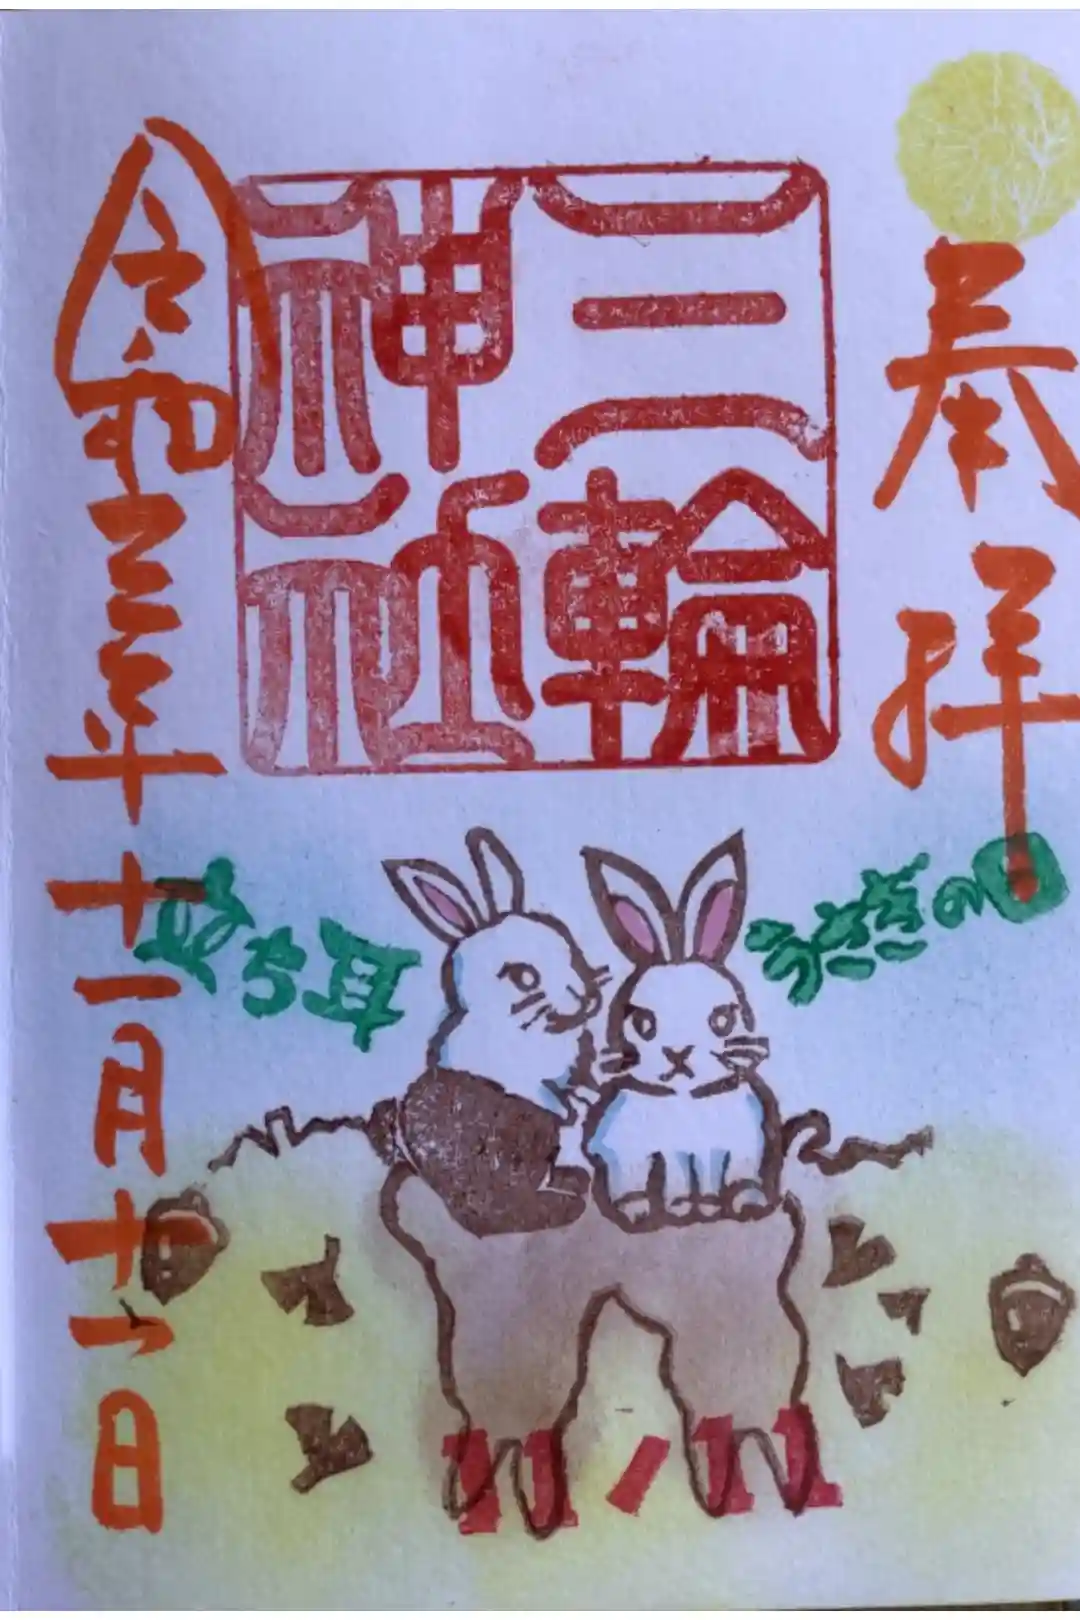 奉拝
三輪
神社
令和三年十一月十一日
ち耳
うさぎの
11/11